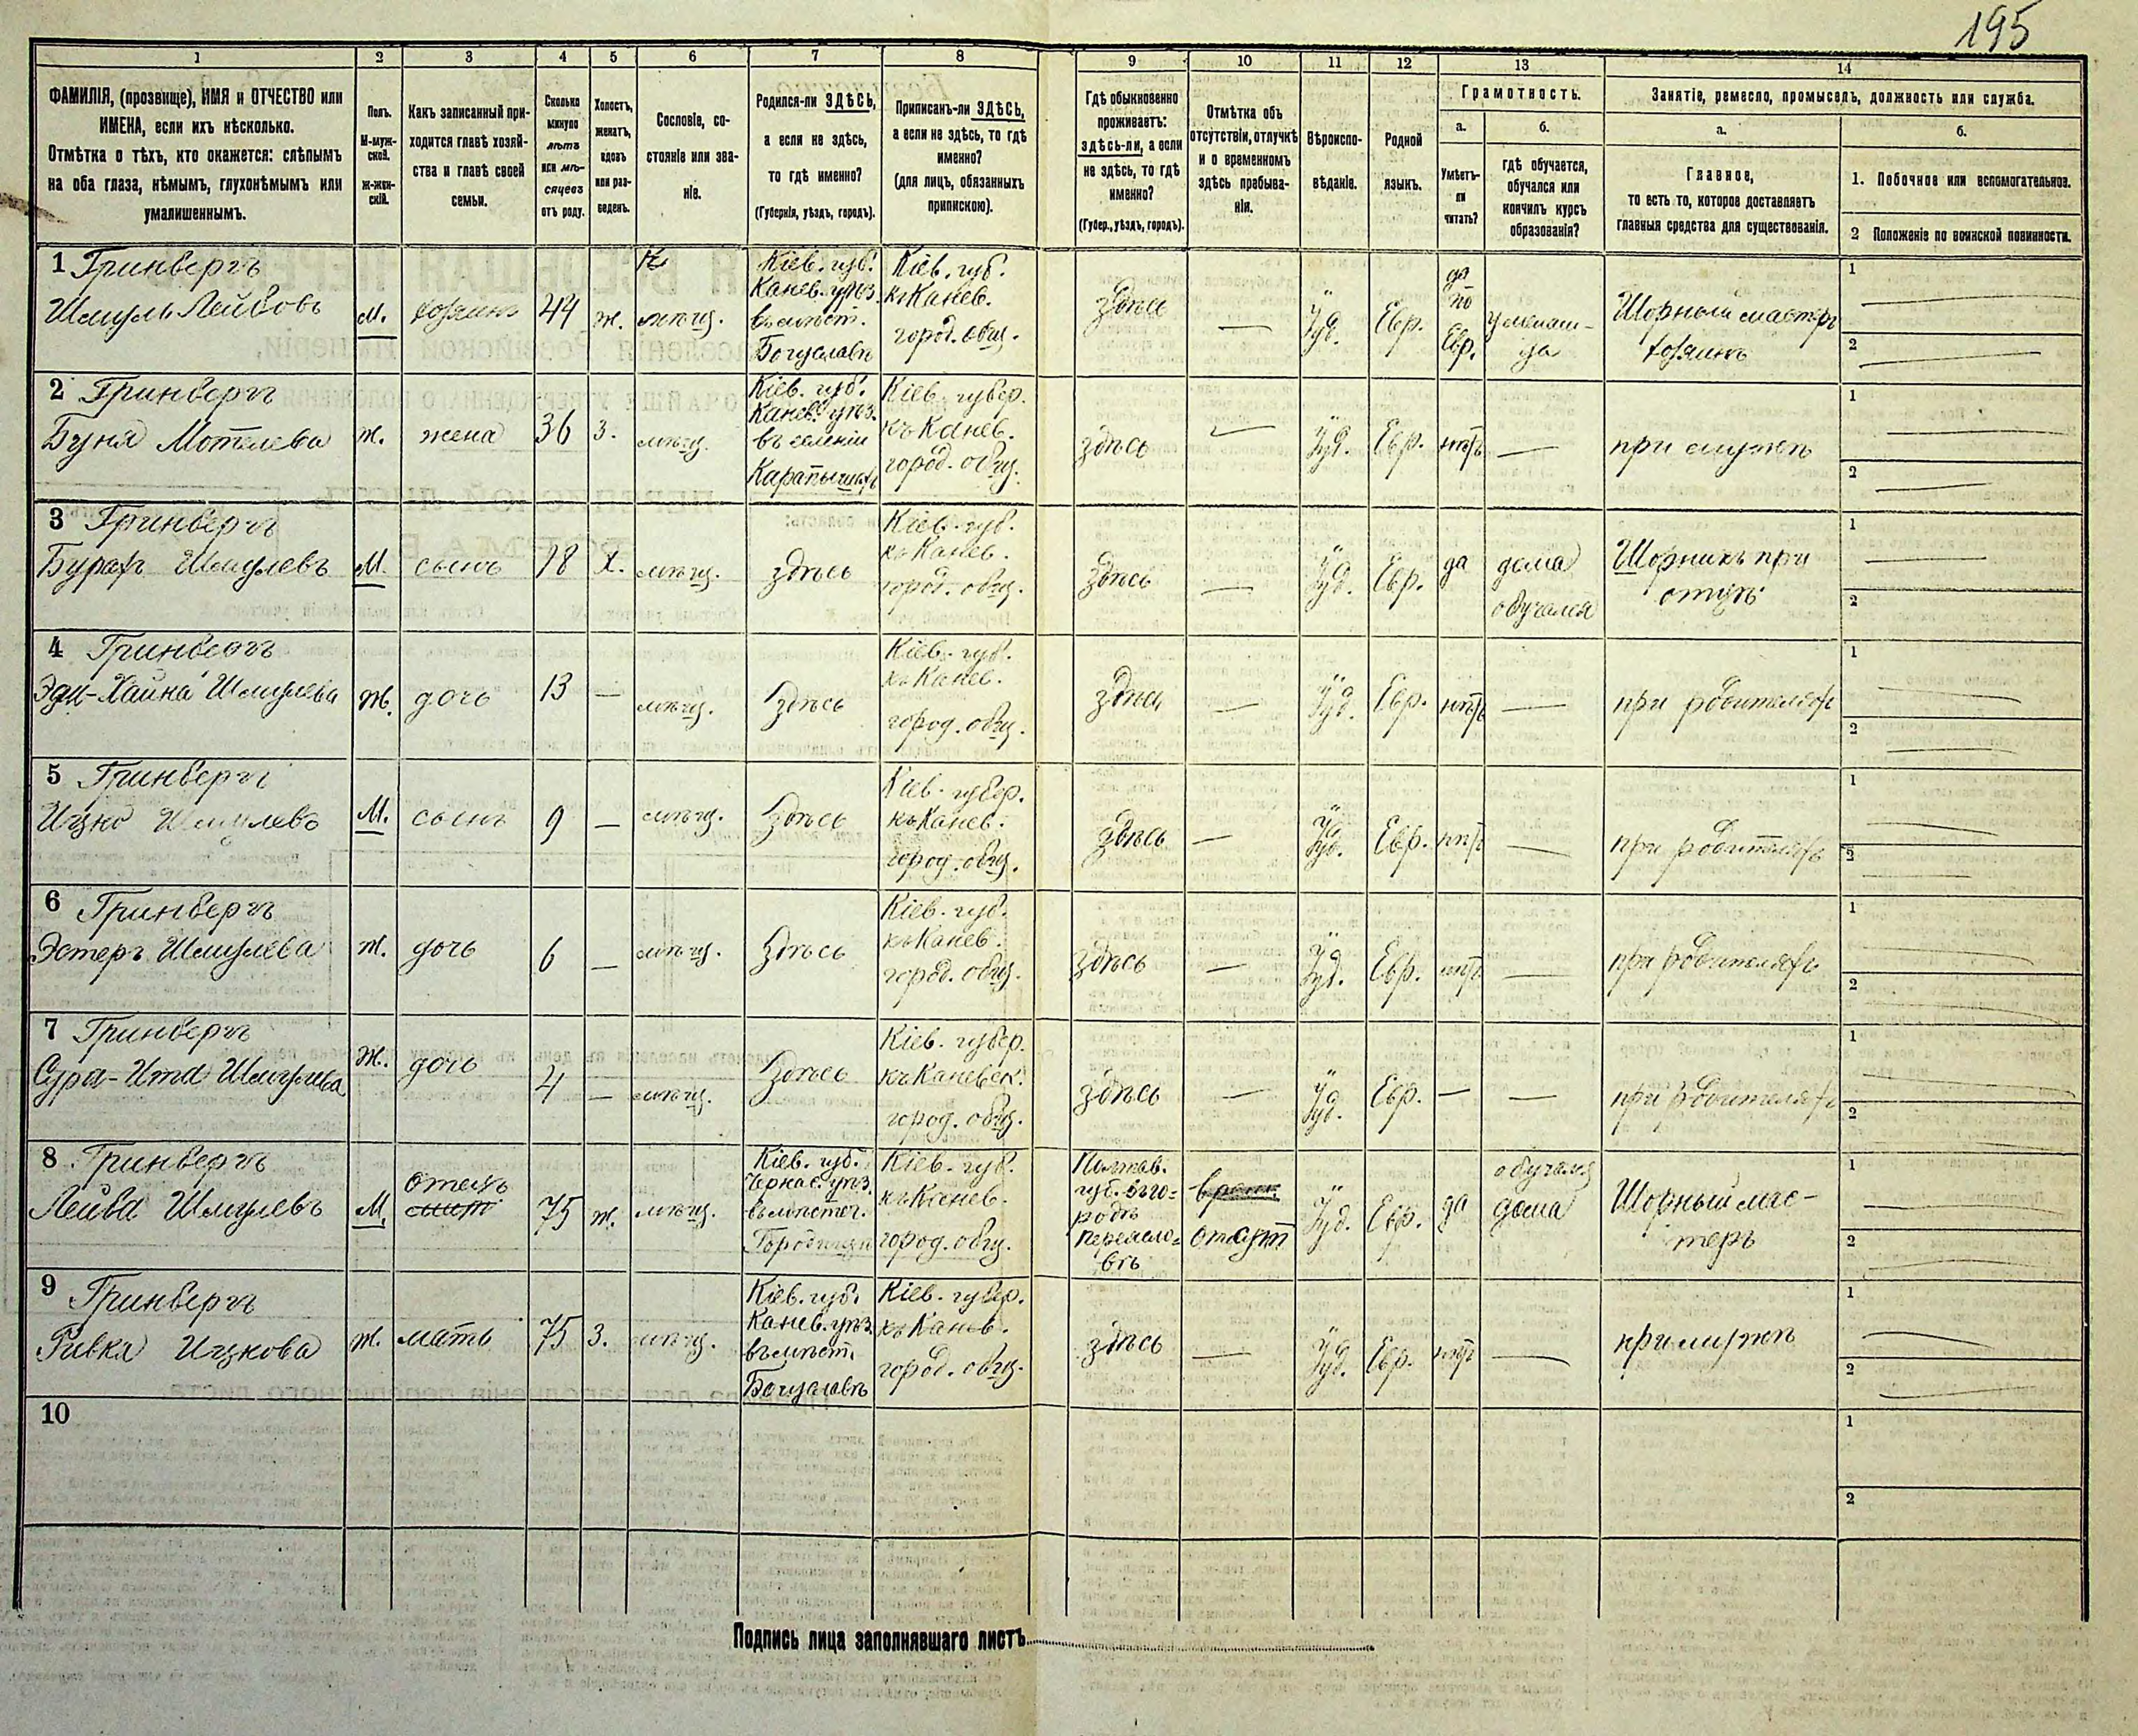 195
1 2 3 4 5 6 7 8 9 10 11 12 13 14
ФАМИЛІЯ, (прозвище), ИМЯ и ОТЧЕСТВО или
ИМЕНА, если ихъ нѣсколько.
Отмѣтка о тѣхъ, кто окажется: слѣпымъ
на оба глаза, нѣмымъ, глухонѣмымъ или
умалишеннымъ.
Полъ.
М-муж-
ской.
Ж-жен-
скій.
Какъ записанный при-
ходится главѣ хозяй-
ства и главѣ своей
семьи.
Сколько
минуло
лѣтъ
или мѣ-
сяцевъ
отъ роду.
Холостъ,
женатъ,
вдовъ
или раз-
веденъ.
Сословіе, со-
стояніе или зва-
ніе.
Родился-ли ЗДѢСЬ,
а если не здѣсь,
то гдѣ именно?
(Губернія, уѣздъ, городъ).
Приписанъ-ли ЗДѢСЬ,
а если не здѣсь, то гдѣ
именно?
(для лицъ, обязанныхъ
припискою).
Гдѣ обыкновенно
проживаетъ:
здѣсь-ли, а если
не здѣсь, то гдѣ
именно?
(Губер., уѣздъ, городъ).
Отмѣтка объ
отсутствіи, отлучкѣ
и о временномъ
здѣсь пребыва-
ніи.
Вѣроиспо-
вѣданіе.
Родной
языкъ.
Грамотность.
а.
Умѣетъ-
ли
читать?
б.
гдѣ обучается,
обучался или
кончилъ курсъ
образованія?
Занятіе, ремесло, промыселъ, должность или служба.
а.
Главное,
то есть то, которое доставляетъ
главныя средства для существованія.
б.
1. Побочное или вспомогательное.
2 Положеніе по воинской повинности.
1 Гринбергъ
Шмуль Лейбовъ
М.
хозяинъ
44
ж.
мѣщ.
Кіев. губ.
Канев. уѣз.
въ мѣст.
Богуславѣ
Кіев. губ.
къ Канев.
город. общ.
здѣсь
—
Іуд.
Евр.
да
по
Евр.
Шорный мастеръ
хозяинъ
1
2
2 Гринбергъ
Буня Мотелева
ж.
жена
36
З.
мѣщ.
Кіев. губ.
Канев. уѣз.
въ селеніи
Карапышахъ
Кіев. губер.
къ Канев.
город. общ.
здѣсь
—
Іуд.
Евр.
нѣтъ
—
при мужѣ
1
2
3 Гринбергъ
Бурахъ Шмулевъ
М.
сынъ
18
Х.
мѣщ.
здѣсь
Кіев. губ.
къ Канев.
город. общ.
здѣсь
—
Іуд.
Евр.
да
дома
обучался
Шорникъ при
отцѣ
1
2
4 Гринбергъ
Ж.
дочь
13
—
мѣщ.
Здѣсь
Кіев. губ.
къ Канев.
город. общ.
здѣсь
—
Іуд.
Евр.
нѣтъ
—
при родителяхъ
1
2
5 Гринбергъ
Ицко Шмулевъ
М.
сынъ
9
—
мѣщ.
Здѣсь
Кіев. губер.
къ Канев.
город. общ.
здѣсь
—
Іуд.
Евр.
нѣтъ
—
при родителяхъ
1
2
6 Гринбергъ
Эстеръ Шмулева
ж.
дочь
6
—
мѣщ.
Здѣсь
Кіев. губ.
къ Канев.
город. общ.
здѣсь
—
Іуд.
Евр.
нѣтъ
—
при родителяхъ
1
2
7 Гринбергъ
Сура-Ита Шмулева
Ж.
дочь
4
—
мѣщ.
Здѣсь
Кіев. губер.
къ Каневск.
город. общ.
здѣсь
—
Іуд.
Евр.
—
—
при родителяхъ
1
2
8 Гринбергъ
Лейба Шмулевъ
М.
отецъ
75
ж.
мѣщ.
Кіев. губ.
Черкас. уѣз.
въ мѣстеч.
Городищи
Кіев. губ.
къ Канев.
город. общ.
Полтав.
губ. въ го=
родѣ
Переясло=
вѣ
отсут
Іуд.
Евр.
да
обучался
дома
Шорный мас-
теръ
1
2
9 Гринбергъ
Ривка Ицкова
ж.
мать
75
З.
мѣщ.
Кіев. губ.
Канев. уѣз.
въ мѣст.
Богуславѣ
Кіев. губер.
къ Канев.
город. общ.
здѣсь
—
Іуд.
Евр.
нѣтъ
—
при мужѣ
1
2
10
1
2
Подпись лица заполнявшаго листъ